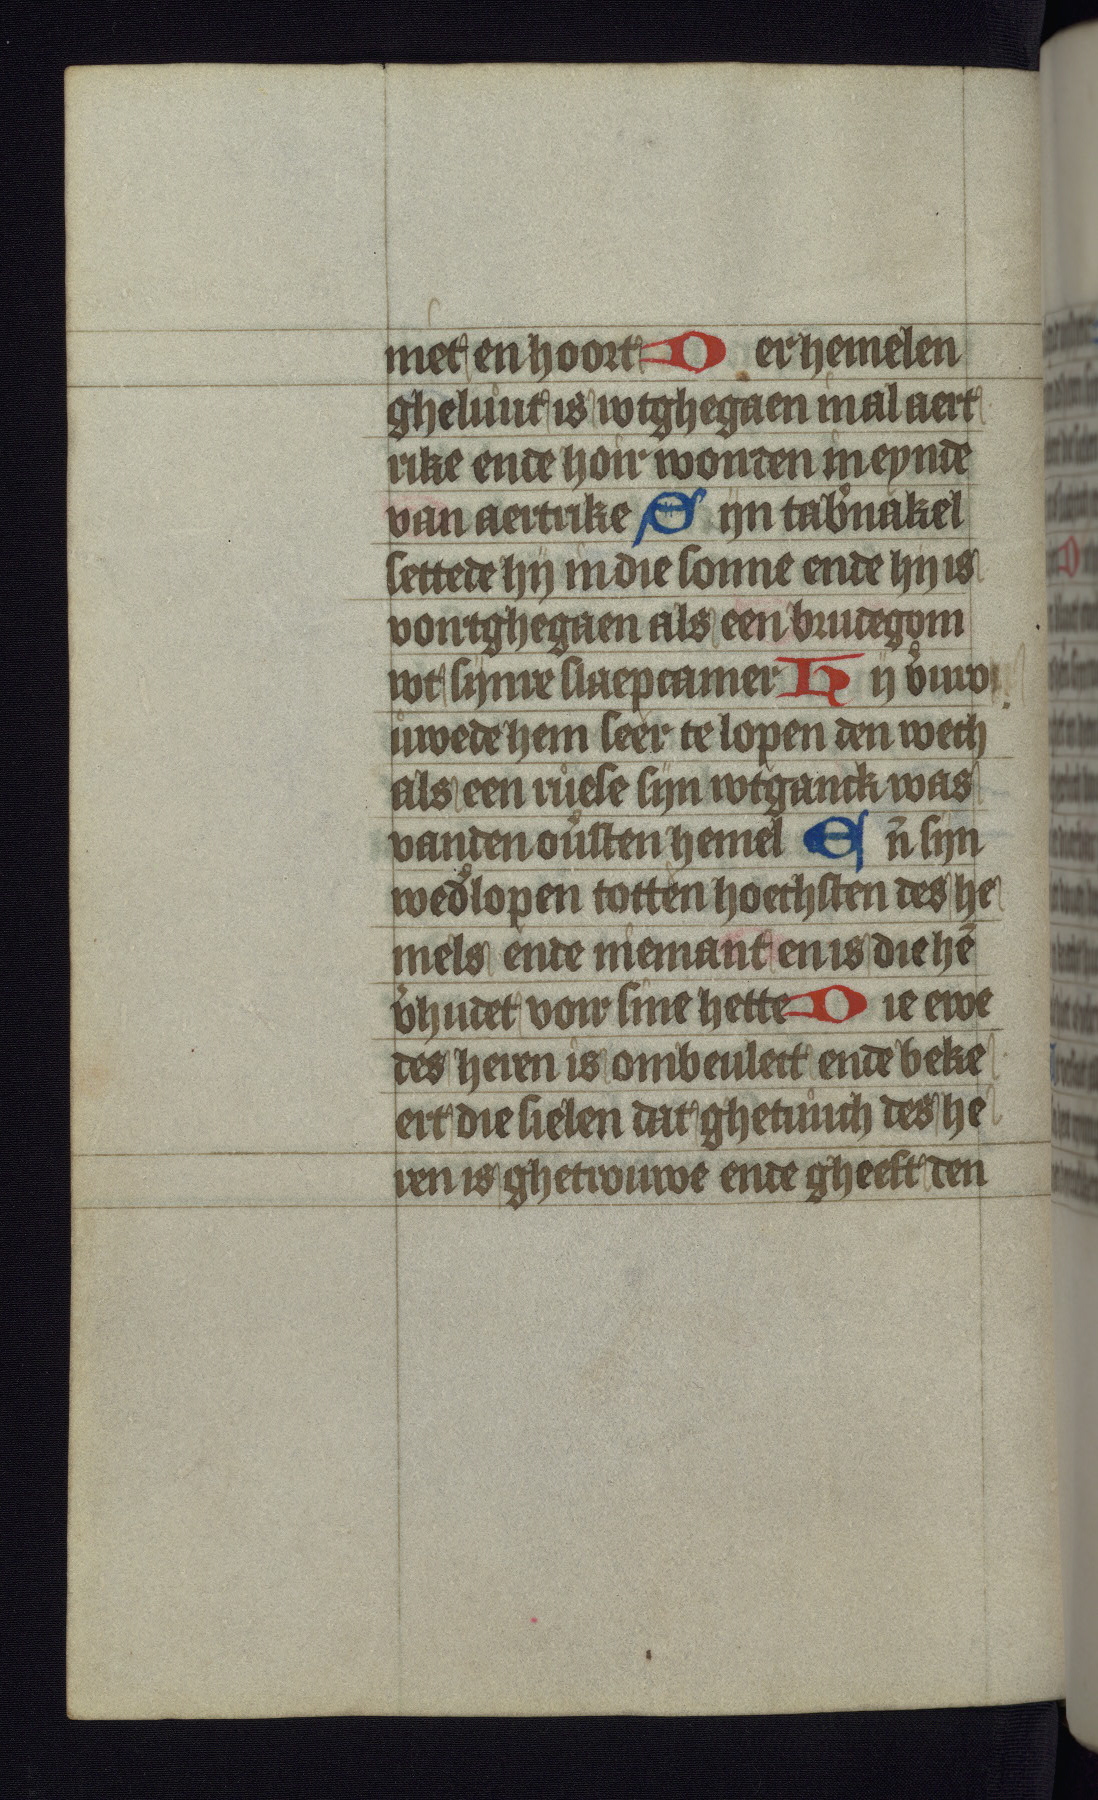 niet en hoort D er hemelen
gheluut is wtghegaen in al aert
rike ende hoir worden in eynde
van aertrike S ijn tab'nakel
settede hij in die sonne ende hij is
voirtghegaen als een brudegom
wt sijnre slaepcamer H ij v'uro
uwede hem seer te lopen den wech
als een ruese sijn wtganck was
vanden ou'sten hemel E n̄ sijn
wed'lopen totten hoechsten des he
mels ende niemant en is die hē
v'hudet voir sine hette D ie ewe
des heren is ombeulect ende beke
ert die sielen dat ghetuuch des he
ren is ghetrouwe ende gheeft den